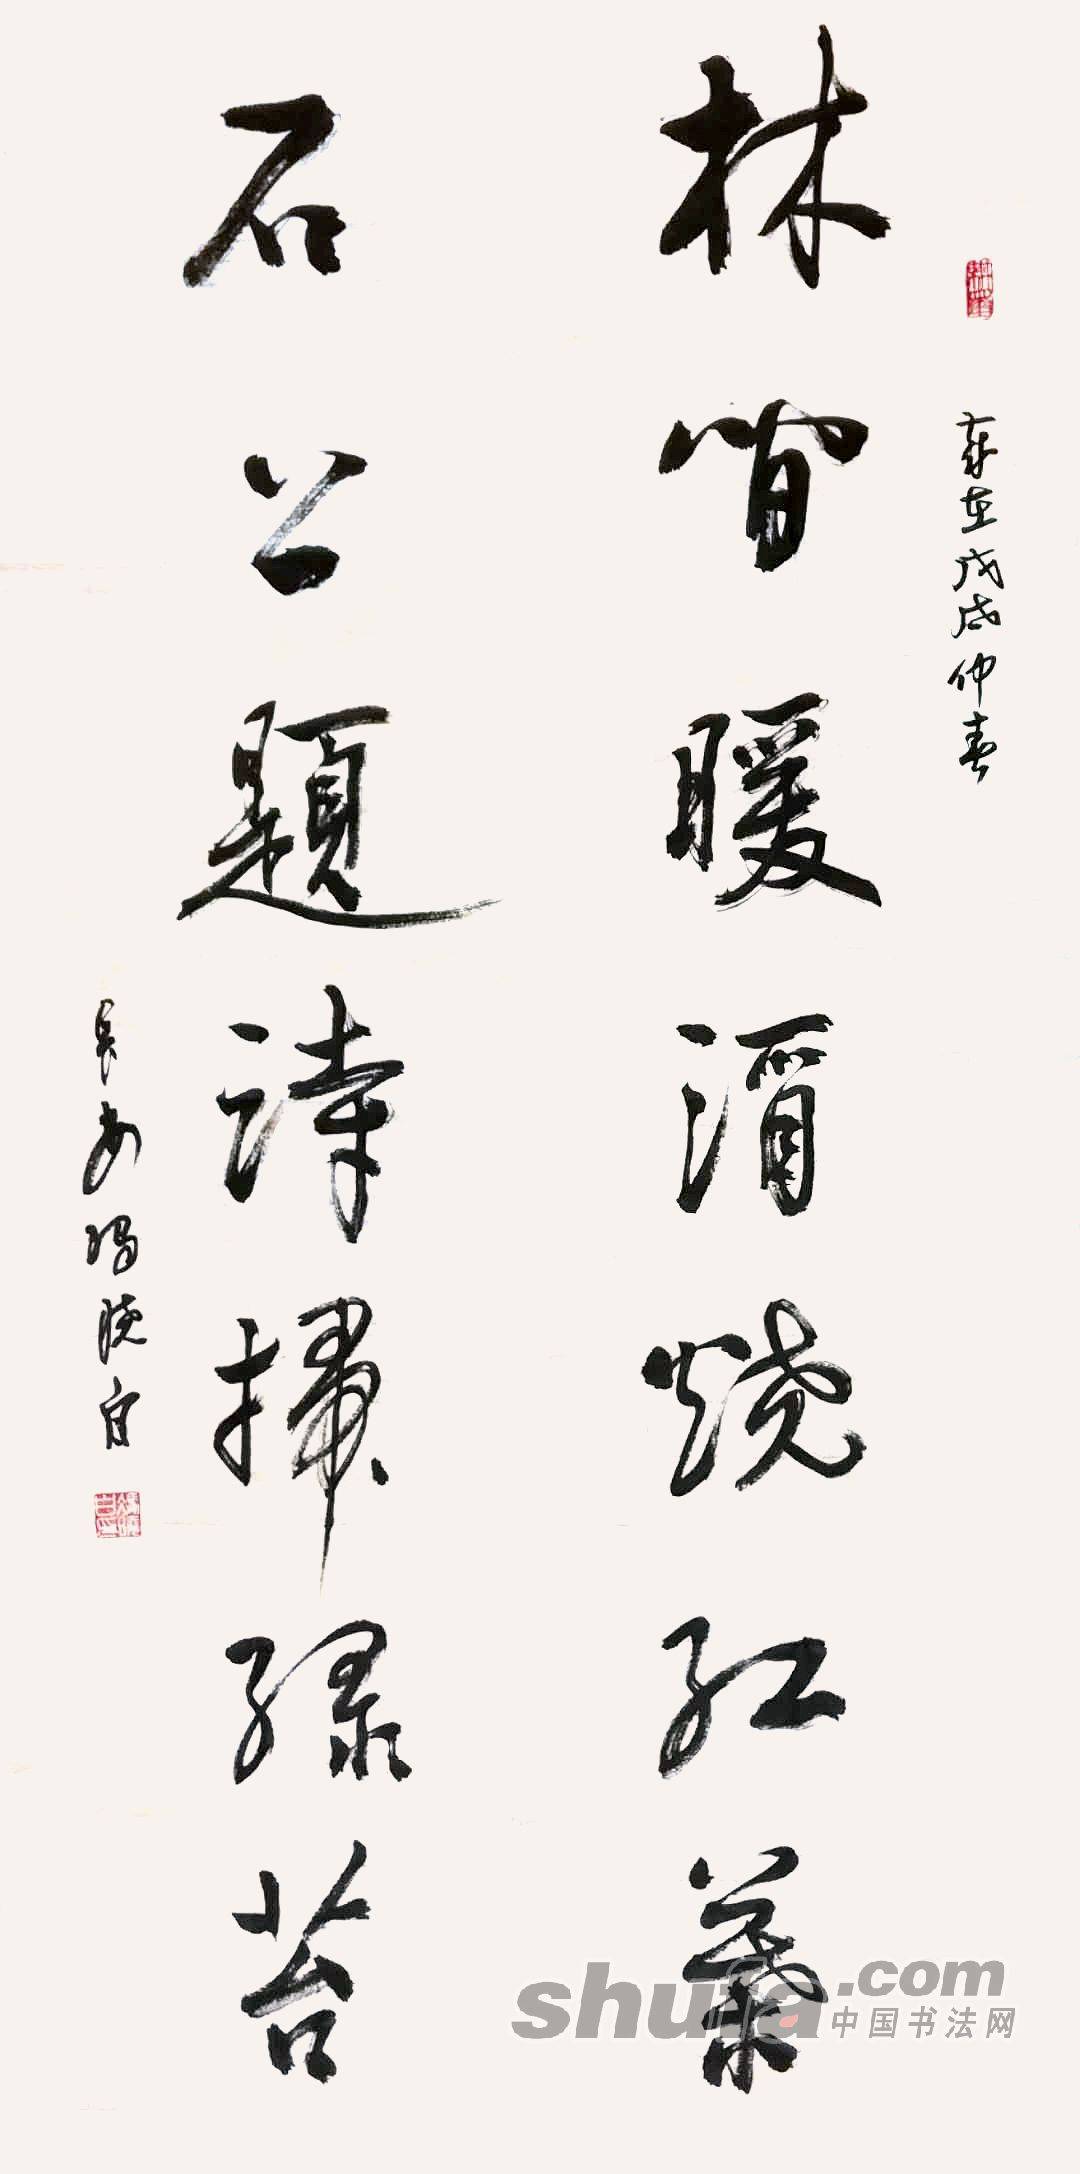 歲在戊戌仲春
林間暖酒燒紅葉
石上題詩掃綠苔
長安馮曉白
shufa.com
中国书法网